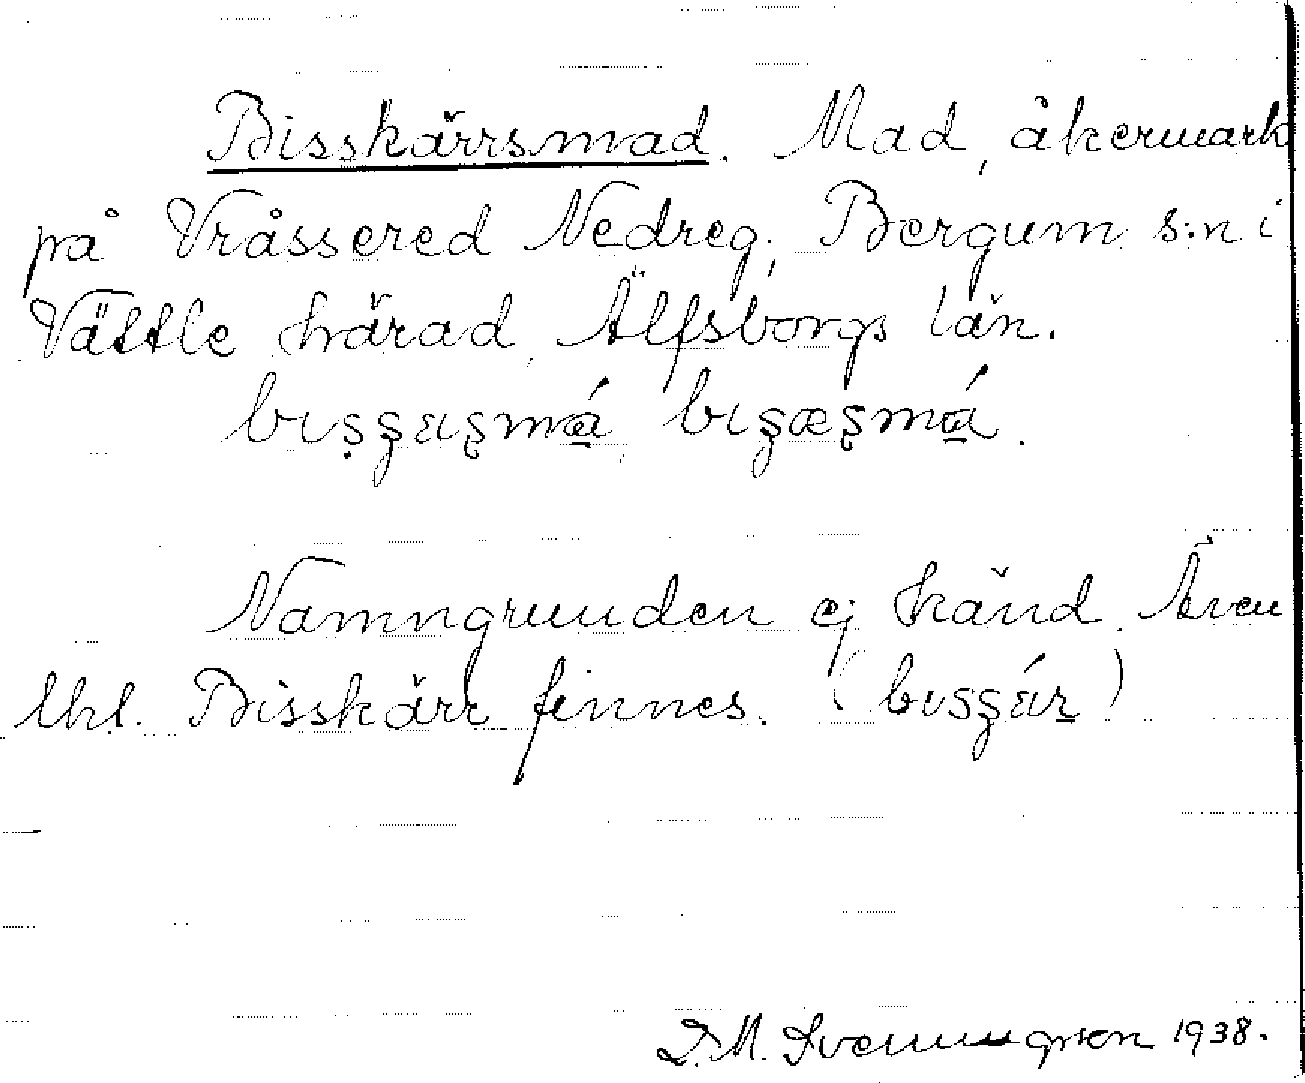 Bisskärrsmad. Mad, åkermark
på Vråssered Nedreg., Bergum s:n i
Vättle härad, Älfsborgs län.
Namngrunden ej känd. Även
lkl. Bisskärr finnes.
D. M. Svenungson 1938.